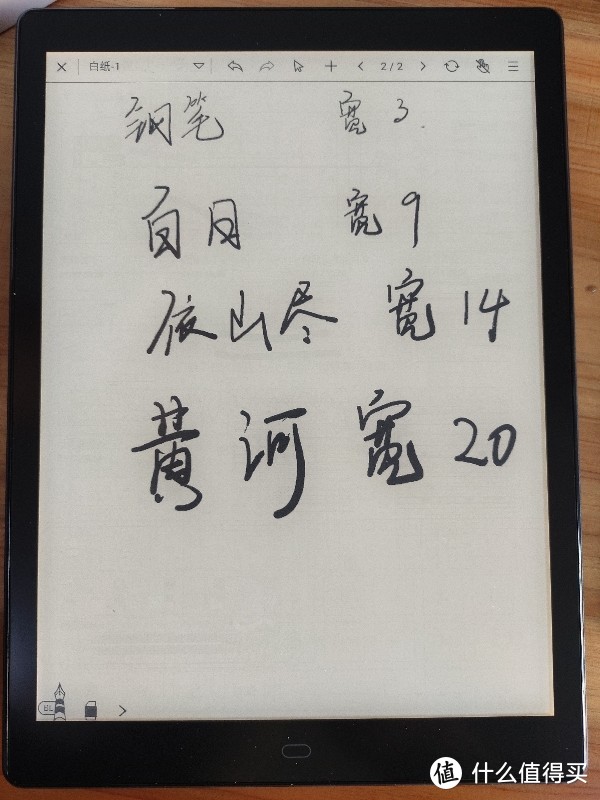 白纸-1 2/2
钢笔 宽3.
白日 宽9
依山尽 宽14
黄河 宽20
值 什么值得买